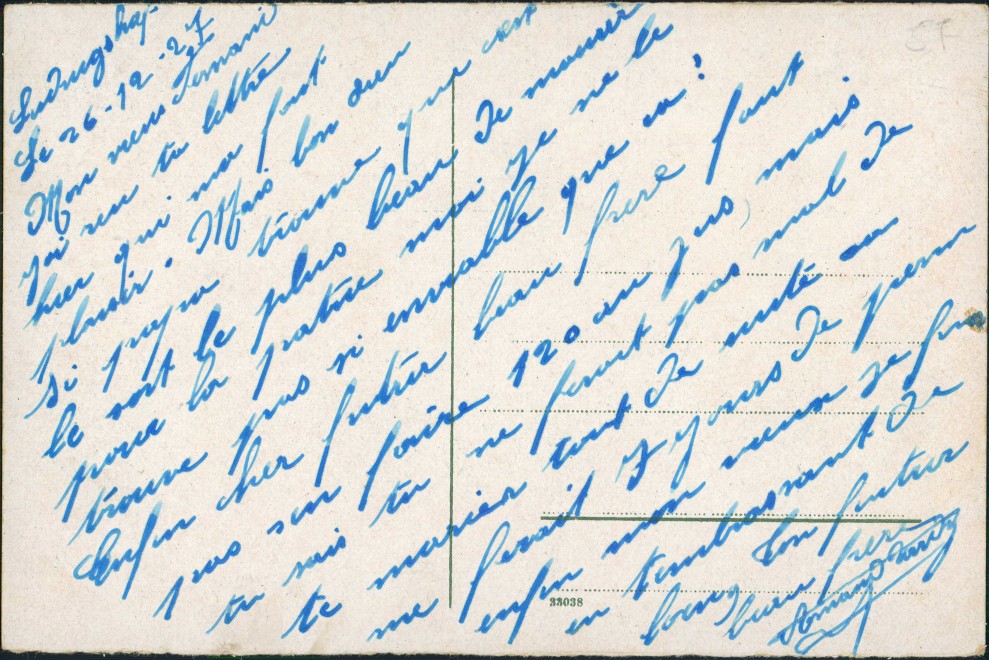 Ludwigshaf-
Le 26-12-27
Mon vieux
j'ai reu ta lettre
hier qui ma fait
plaisir. Mais bon
si papa trouve que ces
le sort le plus beau De mourir
pour la patrie moi je ne le
trouve pas si enviable que ca!
Enfin cher futur beau frere faut
pas sen faire 120 au jus, mais
tu sais tu ne ferait pas mal de
te marier tout De suite ca
me ferait 7 jours De perm
enfin mon vieux je fini
en tembrassant De
loin, Ton futur
beau frere
Armand
33038